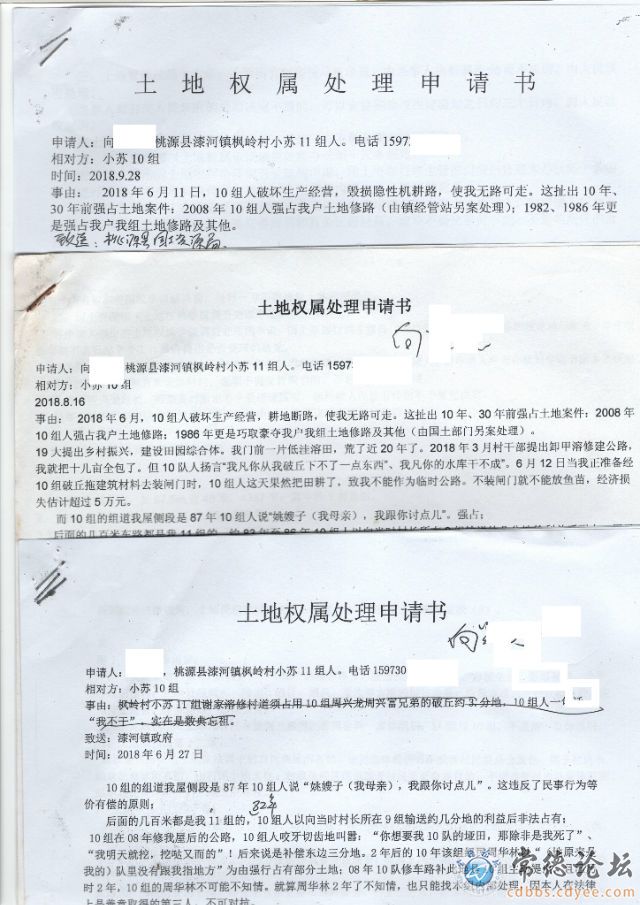 土地权属处理申请书
申请人：向　　桃源县漆河镇枫岭村小苏11组人。电话1597
相对方：小苏10组
时间：2018.9.28
事由：2018年6月11日，10组人破坏生产经营，毁损隐性机耕路，使我无路可走。这扯出10年、
30年前强占土地案件：2008年10组人强占我户土地修路（由镇经管站另案处理）；1982、1986年更
是强占我户我组土地修路及其他。
致送：桃源县国土资源局。
土地权属处理申请书
向
申请人：向　　桃源县漆河镇枫岭村小苏11组人。电话1597
相对方：小苏10组
2018.8.16
事由：2018年6月，10组人破坏生产经营，耕地断路，使我无路可走。这扯出10年、30年前强占土地案件：2008年
10组人强占我户土地修路；1986年更是巧取豪夺我户我组土地修路及其他（由国土部门另案处理）。
19大提出乡村振兴，建设田园综合体。我门前一片低洼溶田，荒了近20年了。2018年3月村干部提出卸甲溶修建公路，
我就把十几亩全包了。但10队人扬言“我凡你从我破丘下不了一点东西”、我凡你的水库干不成”。6月12日当我正准备经
10组破丘拖建筑材料去装闸门时，10组人这天果然把田耕了，致我不能作为临时公路。不装闸门就不能放鱼苗，经济损
失估计超过5万元。
而10组的组道我屋侧段是87年10组人说“姚嫂子（我母亲），我跟你讨点儿”。强占；
土地权属处理申请书
向
人
申请人：　　，桃源县漆河镇枫岭村小苏11组人。电话159730
相对方：小苏10组
事由：枫岭村小苏11组谢家溶修村道须占用10组周兴龙周兴富兄弟的破丘约3分地，10组人一
“我不干”，实在是数典忘祖。
致送：漆河镇政府
时间：2018年6月27日
10组的组道我屋侧段是87年10组人说“姚嫂子（我母亲），我跟你讨点儿”。这违反了民事行为等
价有偿的原则；
82年
后面的几百米都是我11组的，10组人以向当时村长所在9组输送的几分地的利益后非法占有；
10组在08年修我屋后的公路，10组人咬牙切齿地叫嚣：“你想要我10队的垭田，那除非是我死了”、
“我明天就挖，挖哒又而的”！后来说是补偿东边三分地。2年后的10年该组组民周华林
我的）队里没有跟我指地方”为由强行占有部分土地；08年10队修车路补
时2年，10组的周华林不可能不知情。就算周华林2年了不知情，也只能找
常德论坛
cdbbs.cdyee.com